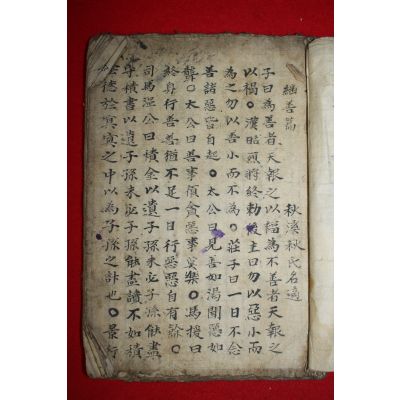 繼善篇 秋溪秋氏名適
子曰為善者天報之以福為不善者天報之
以禍○漢昭烈將終勅後主曰勿以惡小而
為之勿以善小而不為○莊子曰一日不念
善諸惡皆自起○太公曰見善如渴聞惡如
聾○太公曰善事須貪惡事莫樂○馬援曰
終身行善善猶不足一日行惡惡自有餘○
司馬溫公曰積金以遺子孫未必子孫能盡
守積書以遺子孫未必子孫能盡讀不如積
陰德於冥冥之中以為子孫之計也○景行